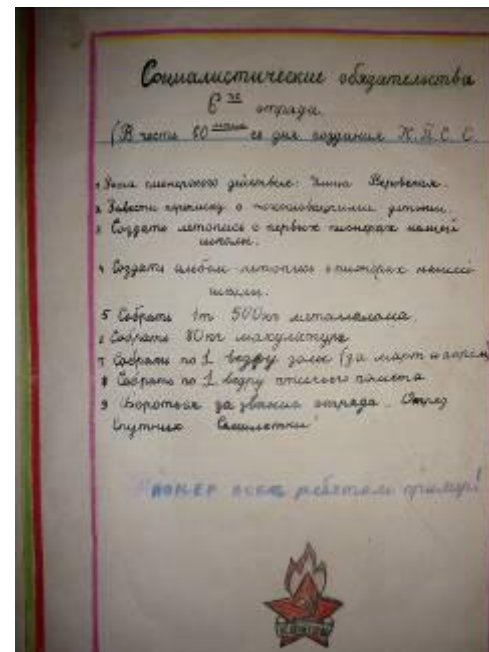 Социалистические обязательства
6 го отряда.
(В честь 60 летия со дня создания К.П.С.С.
1 Зона пионерского действия: Улица Веровская.
2 Завести переписку с чехословацкими детьми.
3 Создать летопись о первых пионерах нашей
школы.
4 Создать альбом летопись о пионерах нашей
школы.
5 Собрать 1т 500кг металлолома.
6 Собрать 80кг макулатуры
7 Собрать по 1 ведру золы (за март и апрель)
8 Собрать по 1 ведру птичьего помёта
9 Бороться за звание отряда. Отряд
Спутник Семилетки
Пионер всем ребятам пример!